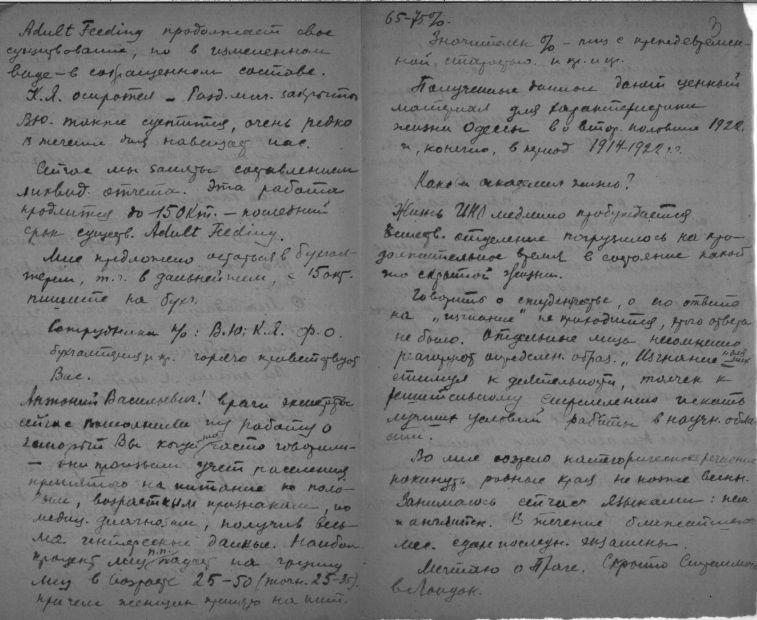 Adult Feeding продолжает свое
существование, но в измененном
виде – в сокращенном составе.
К.Я. осиротел – Разд. закрыто
В.Ю. также суетится, очень редко
в течении дня навещает нас.
Сейчас мы заняты составлением
ликвид. отчета. Эта работа
продлится до 15 Окт. – последний
срок существ. Adult Feeding.
Мне предложено остаться в бухгал-
терии, т.ч. в дальнейшем, с 15 окт.
пишите на бухг.
Сотрудники : В.Ю; К.Я. Ф.О.
бухгалтерия и пр. горячо приветствуют
Вас.
Антоний Васильевич! врачи эксперты
сейчас выполнили ту работу о
которой Вы когда то часто говорили –
– они произвели учет населения
принятого на питание по поло-
вым, возрастным признакам, по
медиц. диагнозам, получив весь-
ма интересные данные. Наибол.
процент лиц п.п. падает на группу
лиц в возрасте 25-50 (точн. 25-35).
причем женщин принято на пит.
65-75%.
3
Значителен % – лиц с преждевремен-
ной старостью и пр. и пр.
Полученные данные дают ценный
материал для характеристики
жизни Одессы в втор. половине 1922г.
и, конечно, в период 1914-1922 г.г.
Какова академия жизнь?
Жизнь ИНО медленно пробуждается
Естеств. отделение погрузилось на про-
должительное время в состояние какой
то скрытой жизни.
Говорить о студенчестве, о его ответе
на „изгнание" не приходится, этого ответа
не было. Отдельные лица несомненно
реагируют определен. образ. „Изгнание" –
стимул к деятельности, толчек к
решительному стремлению искать
лучших условий работы в научн. обла-
сти.
Во мне созрело категорическое решение
покинуть родные края не позже весны.
Занимаюсь сейчас языками: нем
и английск. В течение ближайшего
мес. сдам последн. экзамены.
Мечтаю о Праге. Скрыто
в Лондон.